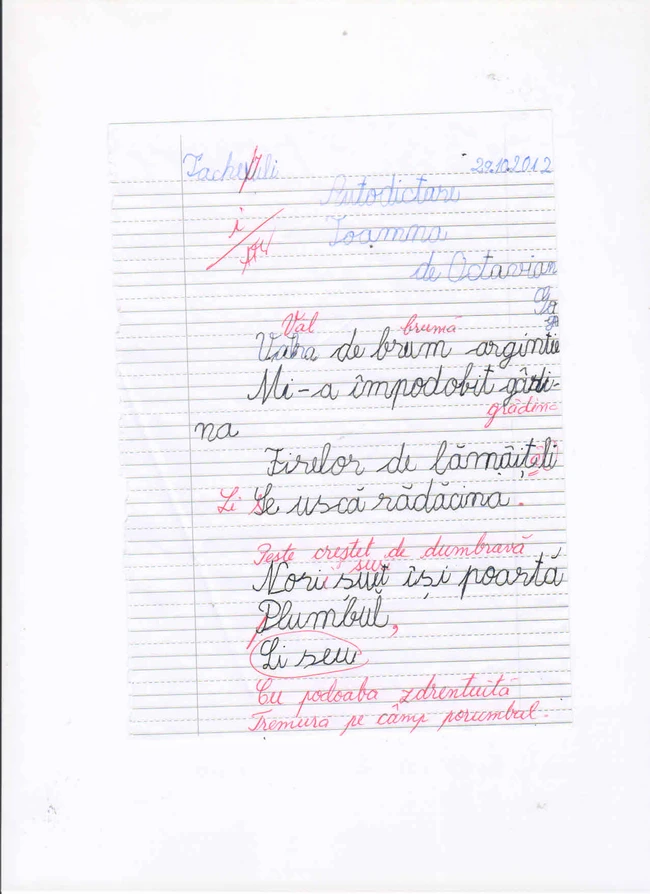 29.10.2012
i
Autodictare
Toamna
de Octavian
Go
ga
Val brumă
Valra de brum argintie
Mi-a împodobit gârdi-
grădina
na
Firelor de lămâițeli
Li Se uscă rădăcina.
Peste creștet de dumbravă
sur
Nori suiți își poartă
Plumbul,
Li seu
Cu podoaba zdrențuită
Tremură pe câmp porumbul.